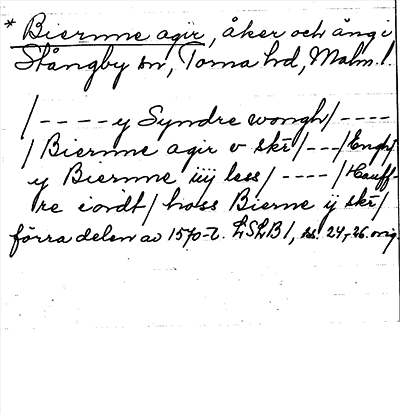 * Biernne agir, åker och äng i
Stångby sn, Torna hd, Malm. l.
/ - - - - y Syndre wongh / - - - -
/ Biernne agir v skr / - - - / Engh /
y Biernne iiij less / - - - - / Hauff-
re iordt / hoss Bierne ij skr /
förra delen av 1570-t. LSLB 1, ss. 24, 26. orig.